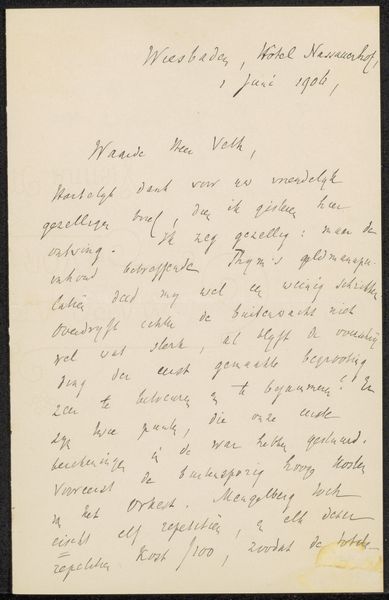 Wiesbaden, Hôtel Nassauerhof,
1 Juni 1906,
Waarde Heer Veth,
Hartelijk dank voor uw vriendelijk
gezelligen brief, dien ik gisteren hier
ontving. Ik zeg gezellig: maar de
inhoud betreffende Thym's geldmanipu-
latiën deed mij wel een weinig schrikken
Overdryft echter de buitenwacht niet
wel wat sterk, al blyft de overschrij
ding der eerst gemaakte begrooting
zeer te betreuren en te bejammeren! Er
zyn twee punten, die onze eerste
berekeningen in de war hebben gestuurd.
Vooreerst de buitensporig hooge kosten
van het Orkest. Mengelberg toch
eischt elf repetitiën, en elk dezer
repetitiën kost f100, zoodat de